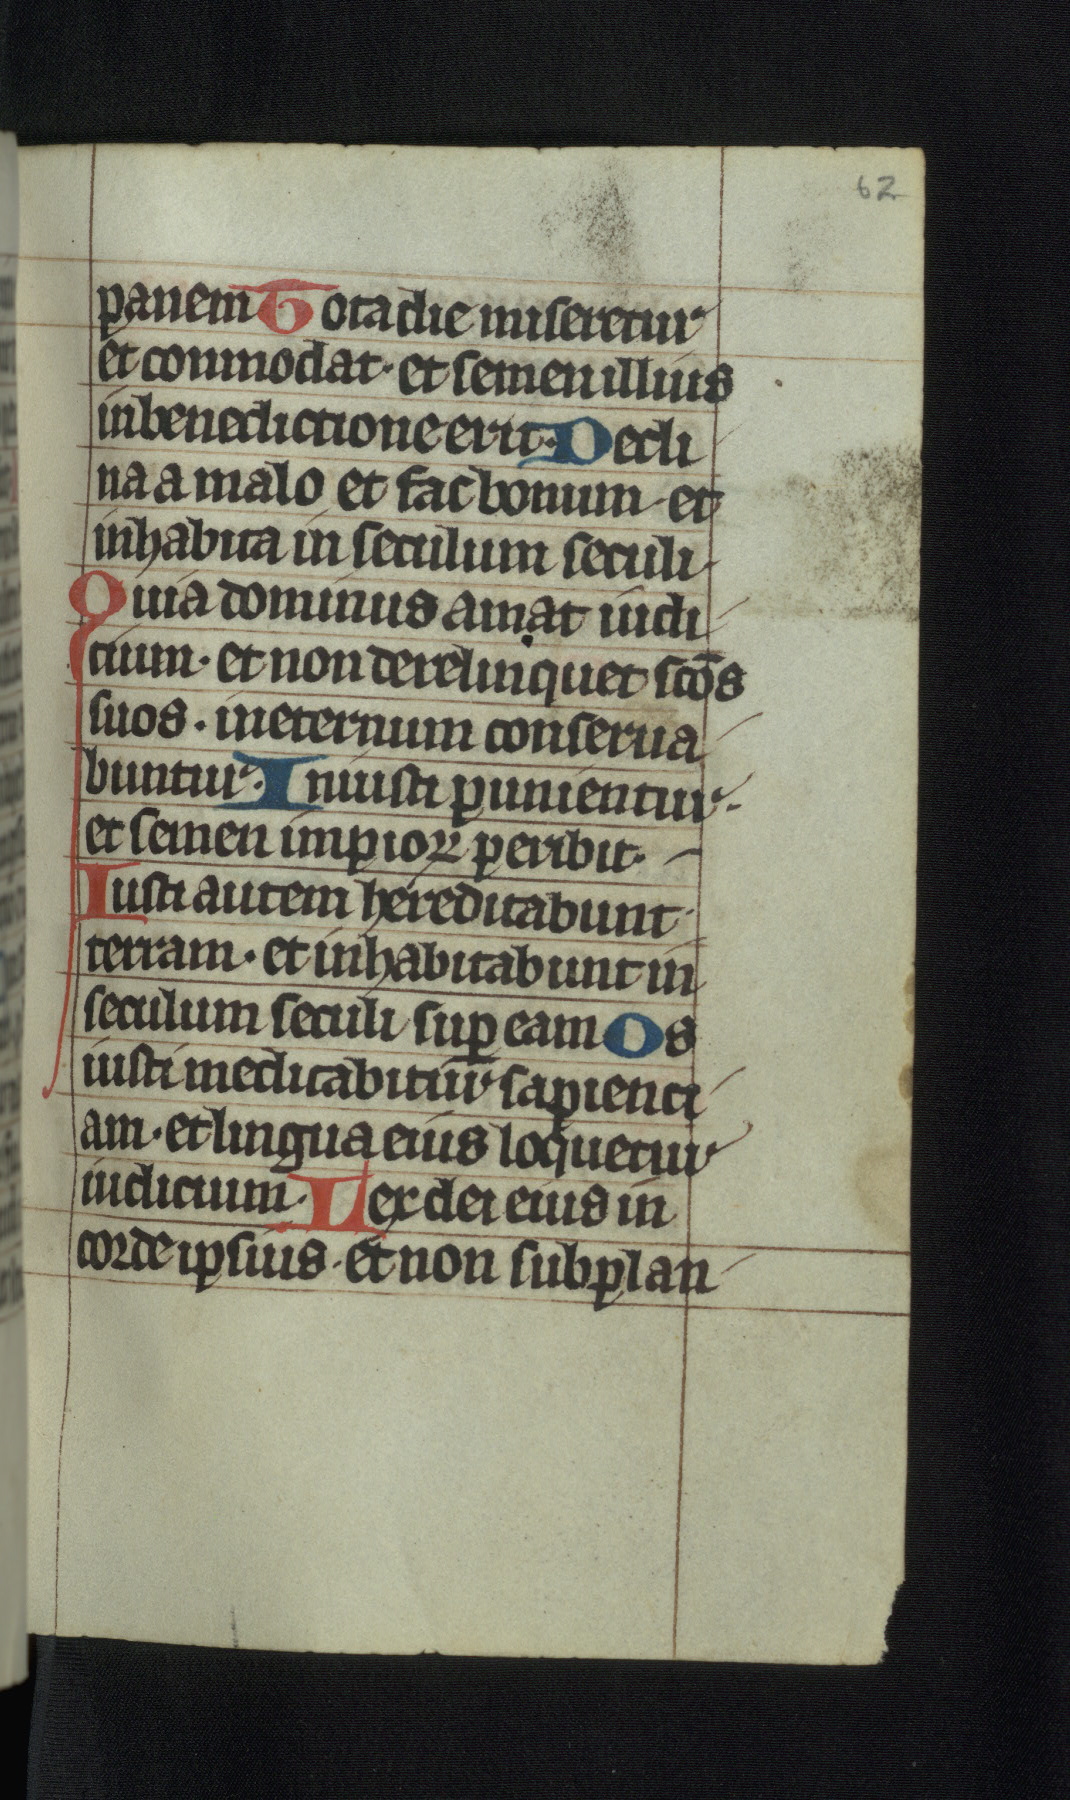 62
panem Tota die miseretur
et commodat · et semen illius
in benedictione erit · Decli
na a malo et fac bonum · et
inhabita in seculum seculi ·
Quia dominus amat iudi
cium · et non derelinquet sc̄os
suos · in eternum conserua
buntur · Iniusti punientur ·
et semen impioꝝ peribit ·
Iusti autem hereditabunt
terram · et inhabitabunt in
seculum seculi suꝑ eam Os
iusti meditabitur sapienti
am · et lingua eius loquetur
iudicium · Lex dei eius in
corde ipsius · et non subplan